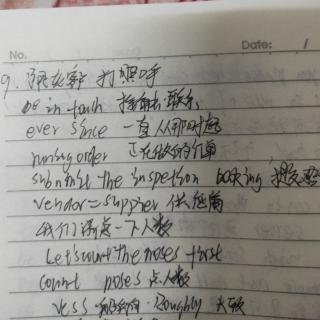 No. Date: /
9. 跟老客 打照呼
be in touch 接触,联系
ever since 一直从那时起
runing order 正在做的订单
submit the inspection booking,提交
vendor = supplier 供应商
我们清点一下人数
Let's count the noses first
count noses 点人数
Roughly 大致